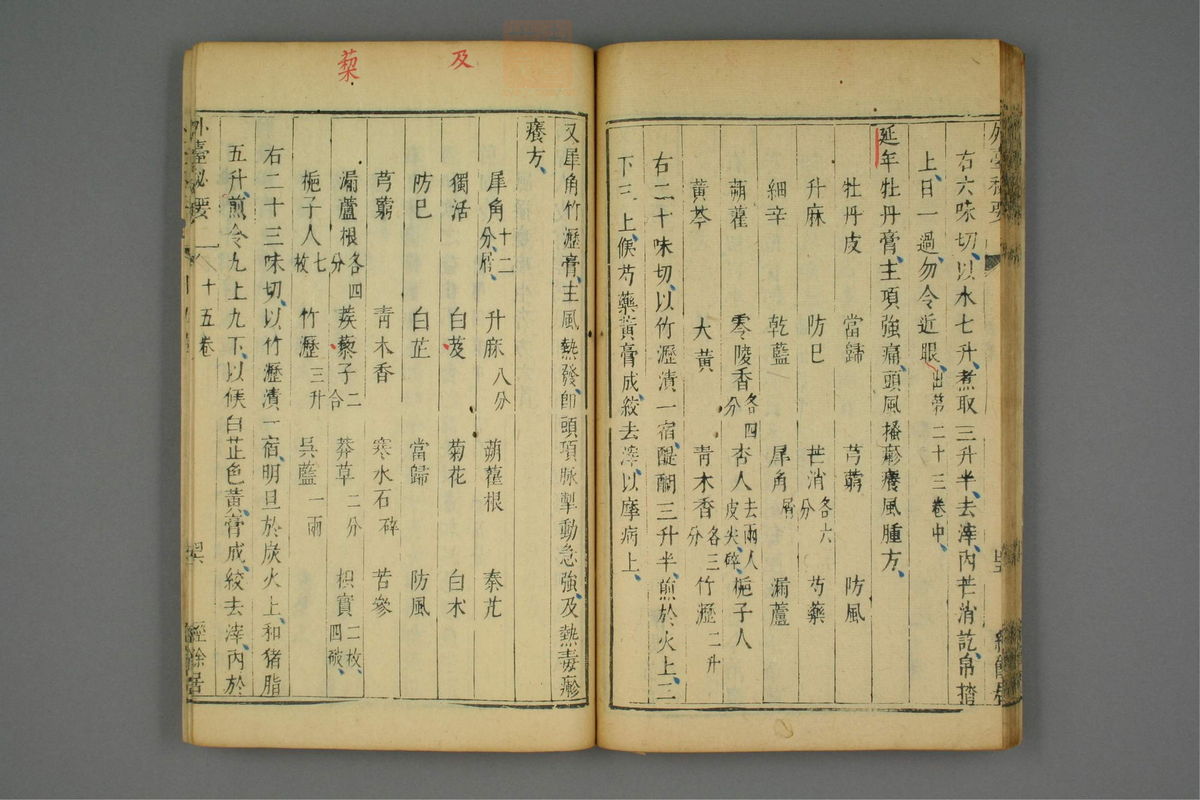 右六味切以水七升煮取三升半去滓內芒消訖帛搚
上日一過勿令近眼出第二十三卷中
延年牡丹膏主項強痛頭風搔癮癢風腫方
牡丹皮 當歸 芎藭 防風
升麻 防巳 芒消各六分 芍藥
細辛 乾藍 犀角屑 漏蘆
蒴藋 零陵香各四分 杏人去兩人皮尖碎 梔子人
黃芩 大黃 青木香各三分 竹瀝二升
右二十味切以竹瀝漬一宿醍醐三升半煎於火上三
下三上候芍藥黃膏成絞去滓以摩病上
又犀角竹瀝膏主風熱發即頭項脉掣動急強及熱毒㾦
癢方
犀角十二分屑 升麻八分 蒴藋根 秦艽
獨活 白芨 菊花 白朮
防巳 白芷 當歸 防風
芎藭 青木香 寒水石碎 苦參
漏蘆根各四分 蒺藜子二合 莽草二分 枳實二枚四破
梔子人七枚 竹瀝三升 吳藍一兩
右二十三味切以竹瀝漬一宿明旦於炭火上和猪脂
五升煎令九上九下以候白芷色黃膏成絞去滓內於
外臺秘要
十五卷
經餘居
及
藜